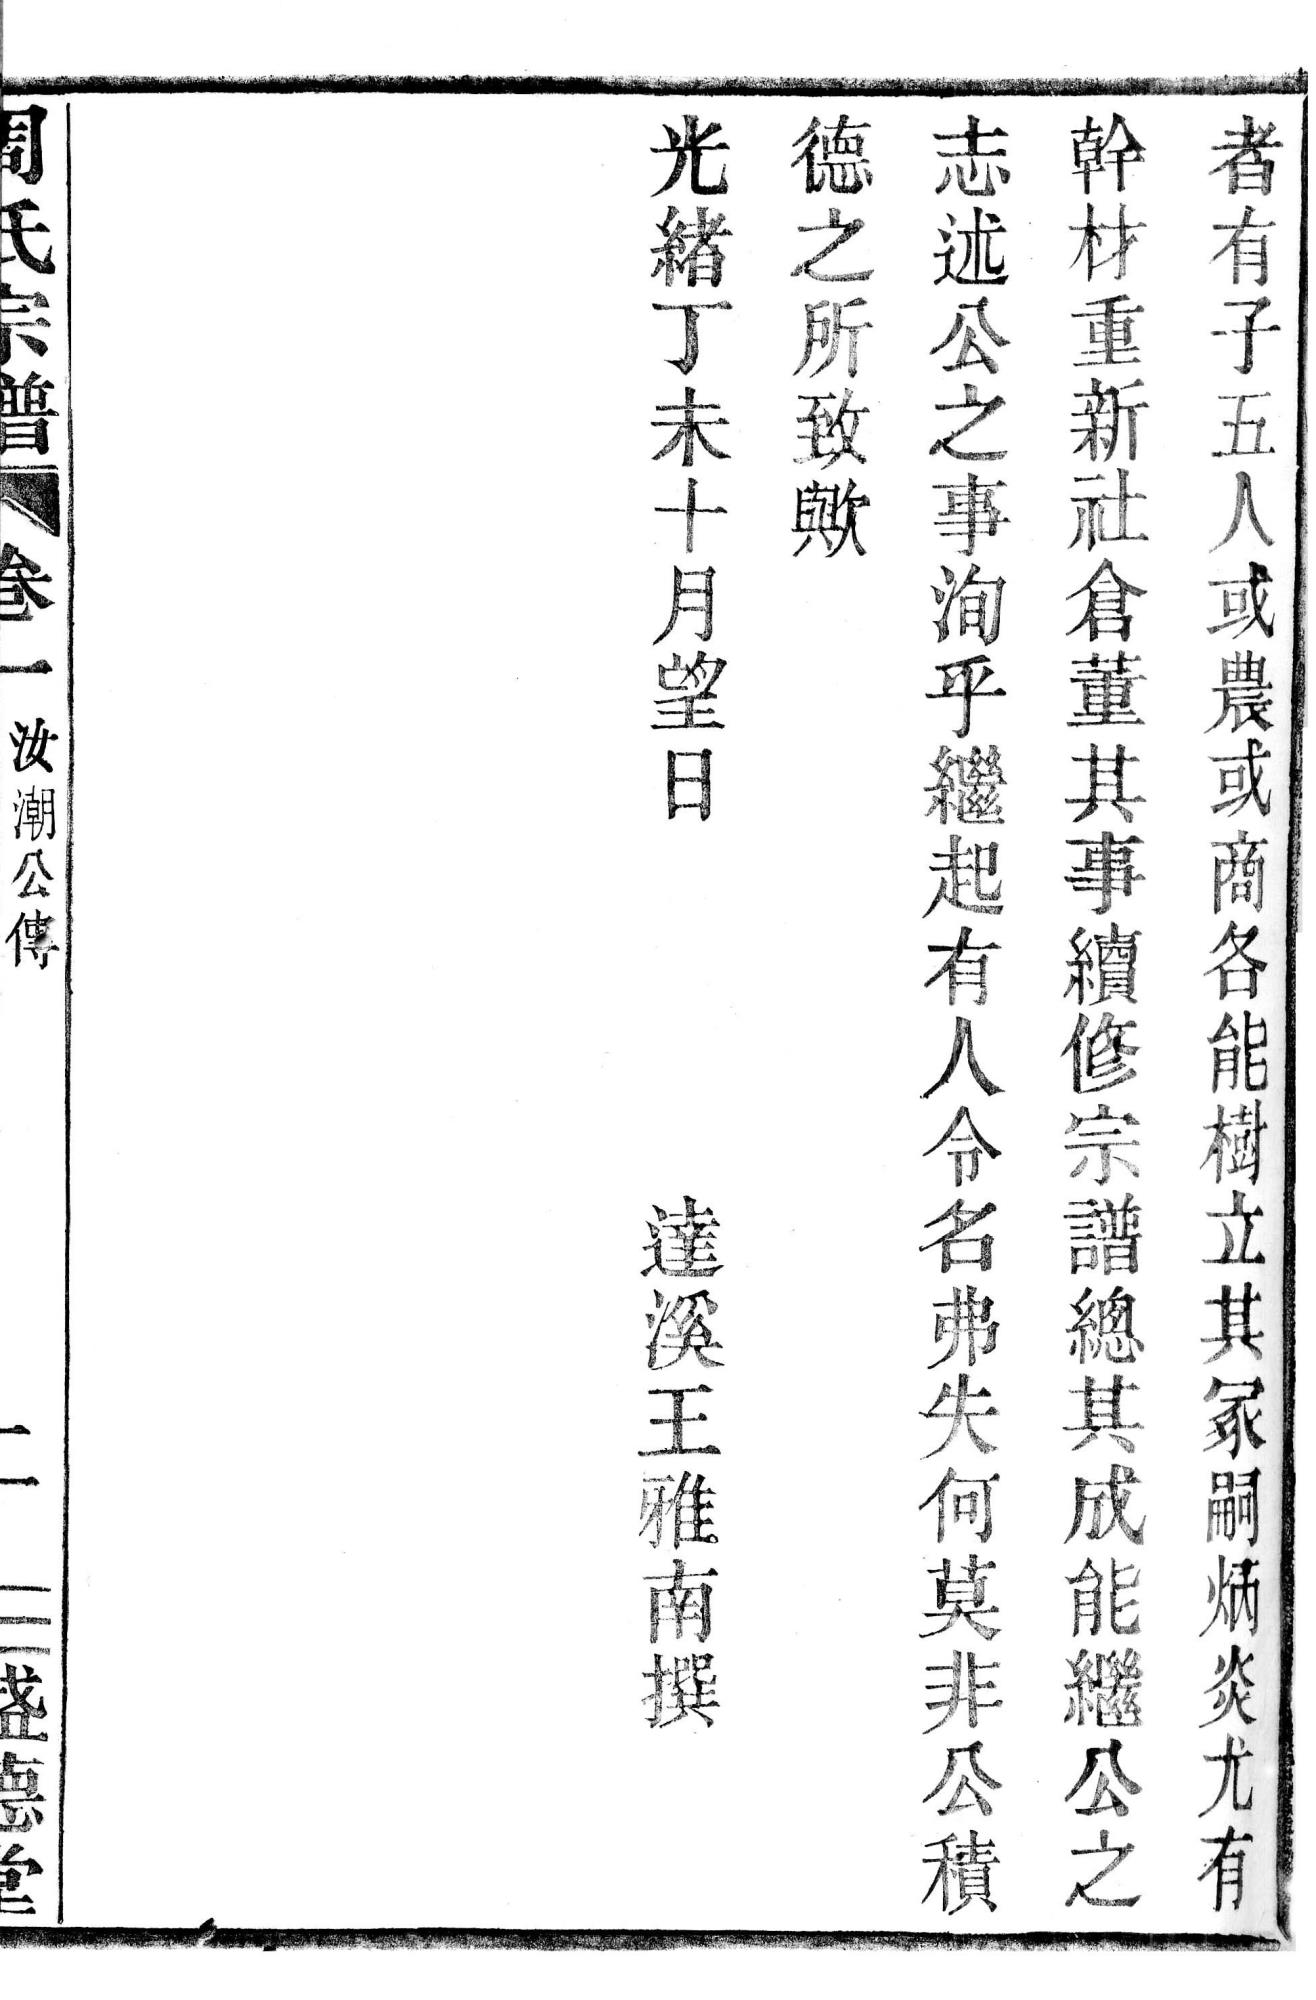 者有子五人或農或商各能樹立其冢嗣炳炎尤有
幹材重新社倉董其事續修宗譜總其成能繼公之
志述公之事洵乎繼起有人令名弗失何莫非公積
德之所致歟
光緒丁未十月望日 達溪王雅南撰
周氏宗譜 卷一 汝潮公傳 二 盛德堂